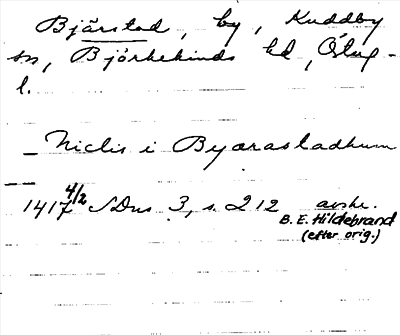 Bjärstad, by, Kuddby
sn, Björkekinds hd, Östg-
l.
_ Niclis i Byærastadhum
1417 4/2 SDns 3, s. 212 avskr.
B. E. Hildebrand
(efter orig.)